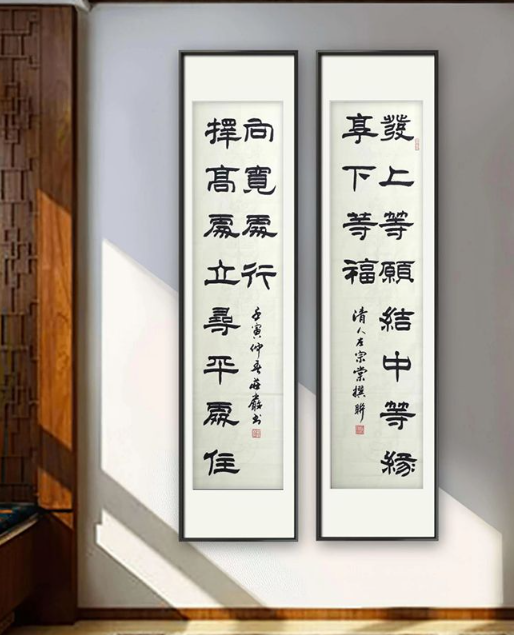 發上等願結中等緣
享下等福
清人左宗棠撰聯
擇髙處立尋平處住
向寬處行
壬寅仲春莊嚴书